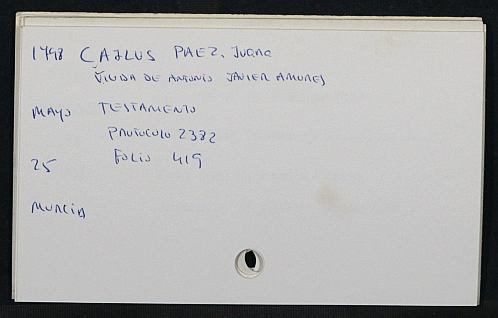 1798 CAZLUS PAEZ, Juana
VIUDA DE ANTONIO JAVIER AMORES
MAYO TESTAMENTO
PROTOCOLO 2382
25 FOLIO 419
MURCIA